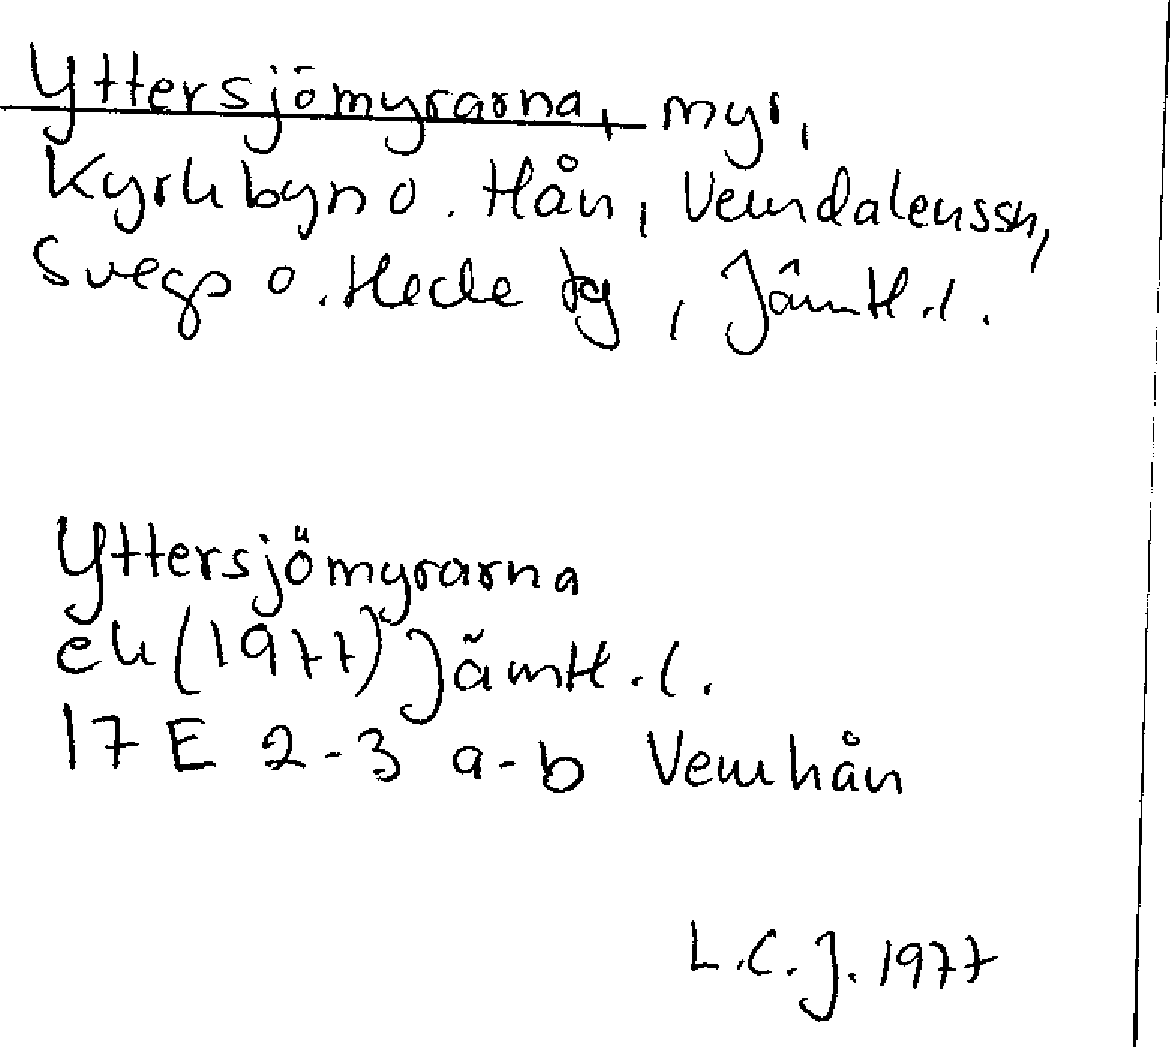 Yttersjömyrarna, myr,
Kyrkbyn o. Hån, Vemdalenssn,
Svegs o. Hede tg, Jämtl. l.
Yttersjömyrarna
ek (1977) Jämtl. l.
17 E 2-3 a-b Vemhån
L.C.J. 1977